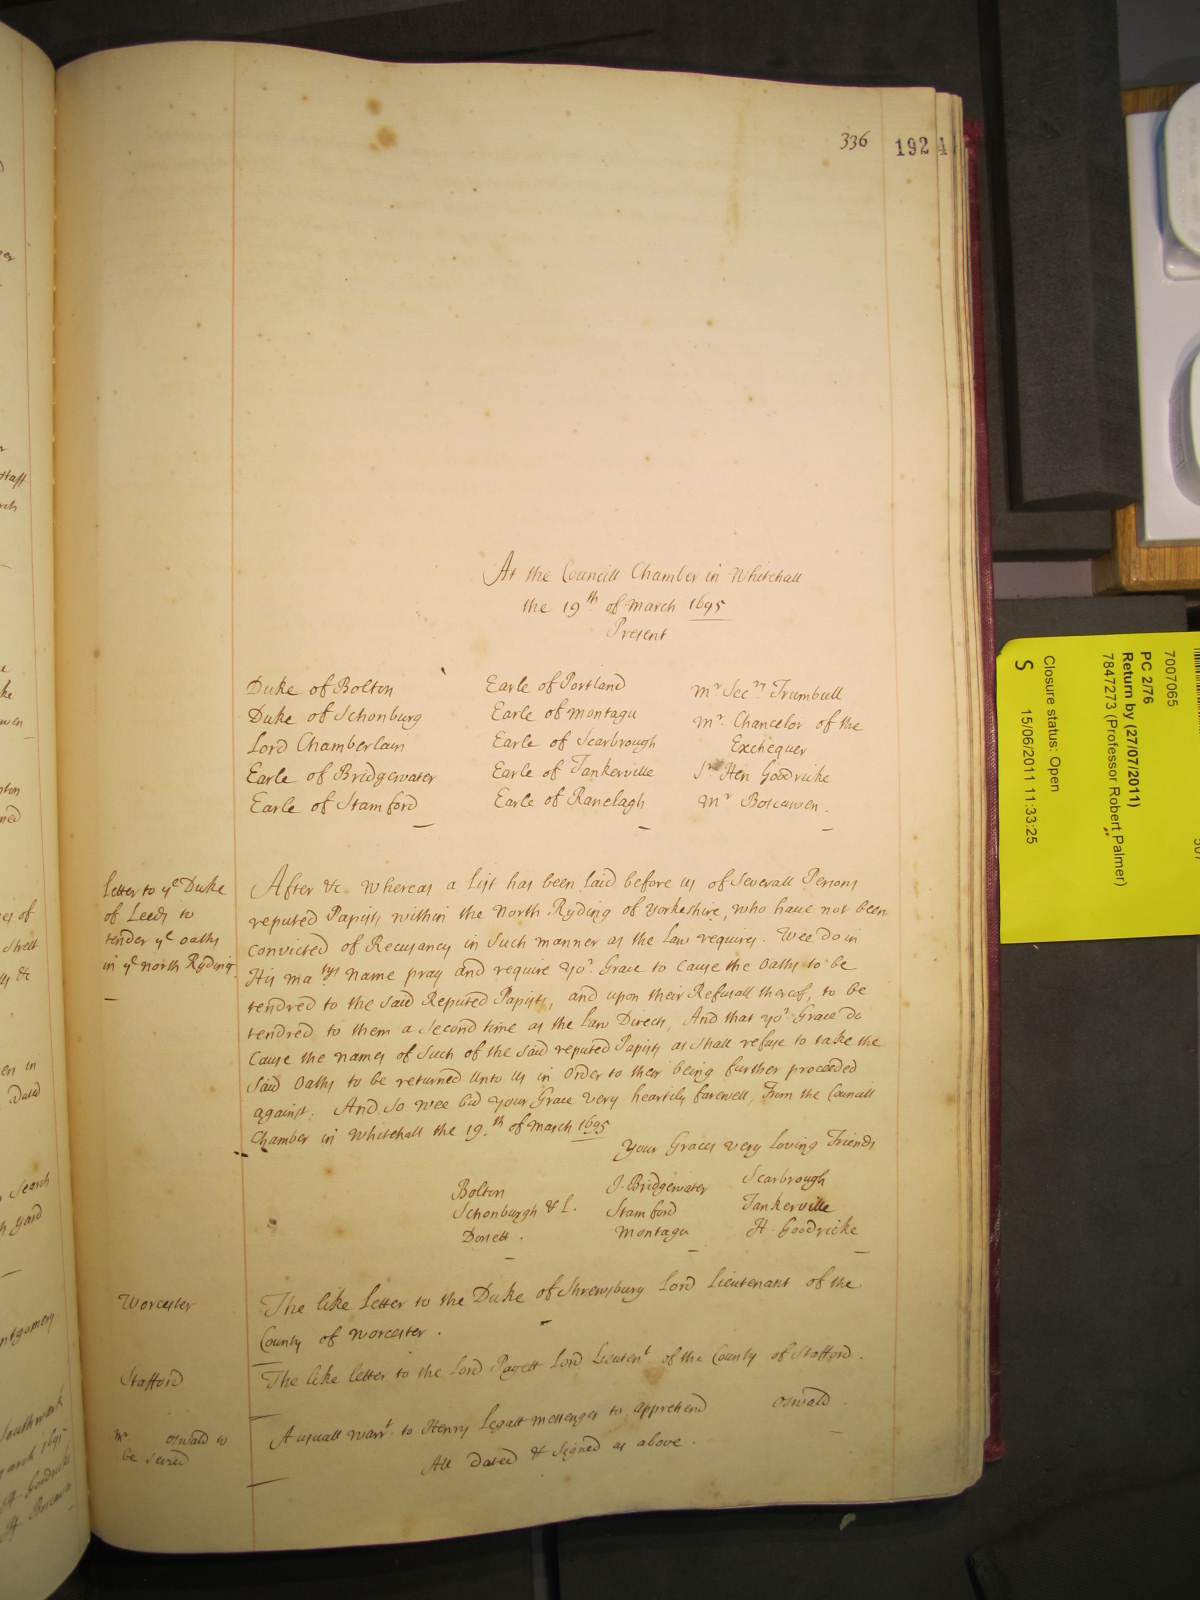 336
192
At the Councill Chamber in Whitehall
the 19th of March 1695
Present
Duke of Bolton
Duke of Schonburg
Lord Chamberlain
Earle of Bridgewater
Earle of Stamford
Earle of Portland
Earle of Montagu
Earle of Scarbrough
Earle of Tankerville
Earle of Ranelagh
Mr Secry Trumbull
Mr Chancelor of the
Exchequer
Sr Hen Goodricke
Mr Boscawen.
Letter to ye Duke
of Leeds to
tender ye oaths
in ye North Ryding
After &c. Whereas a List has been Laid before us of Severall Persons
reputed Papists within the North Ryding of Yorkeshire, who have not been
convicted of Recusancy in Such manner as the Law requires. Wee do in
His Matys Name pray and require yor Grace to Cause the Oaths to be
tendred to the said Reputed Papists, and upon their Refusall thereof, to be
tendred to them a Second time as the Law Directs, And that yor Grace do
Cause the names of Such of the said reputed Papists as shall refuse to take the
said Oaths to be returned unto us in Order to their being further proceeded
against. And so wee bid your Grace very heartily farewell, From the Councill
Chamber in Whitehall the 19th of March 1695
Your Graces very loving Friends
Bolton
Schonburgh & L.
Dorsett.
J. Bridgewater
Stamford
Montagu
Scarbrough
Tankerville
H. Goodricke
Worcester
The like Letter to the Duke of Shrewsbury Lord Lieutenant of the
County of Worcester.
Stafford
The like letter to the Lord Pagett Lord Lieutent of the County of Stafford.
Mr Oswald to
be seized
A usuall warrt to Henry Legatt messenger to apprehend Oswald.
All Dated & Signed as above.
7007065
PC 2/76
Return by (27/07/2011)
7847273 (Professor Robert Palmer)
Closure status: Open
S 15/06/2011 11:33:25